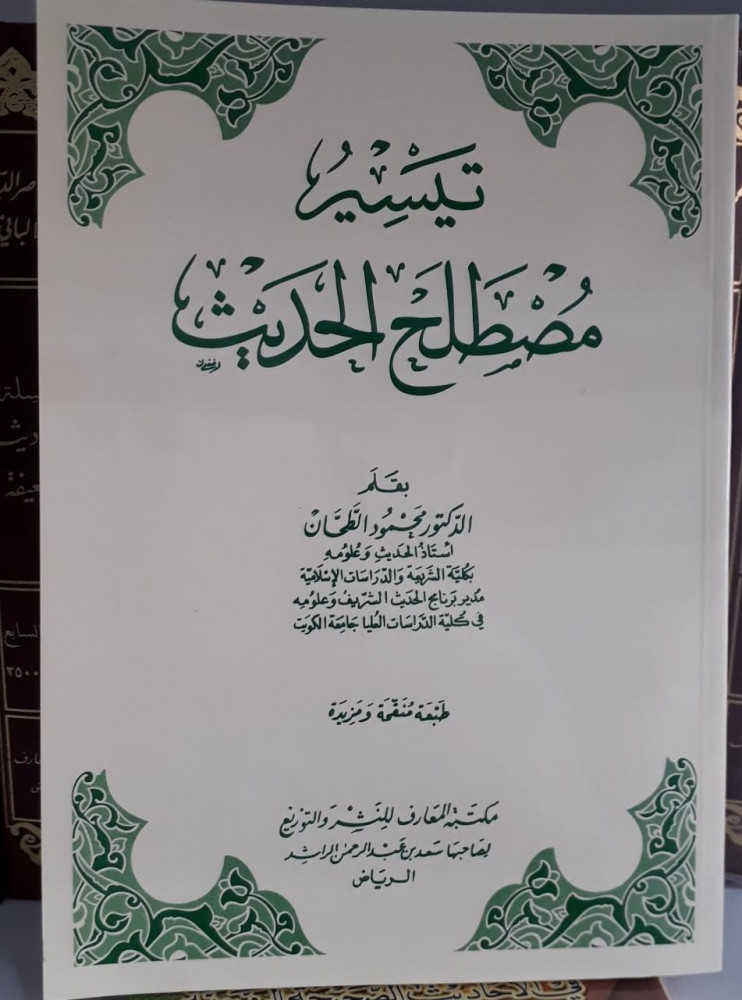 تيسير
مصطلح الحديث
بقلم
الدكتور محمود الطحان
أستاذ الحديث وعلومه
بكلية الشريعة والدراسات الإسلامية
مدير برنامج الحديث الشريف وعلومه
في كلية الدراسات العليا جامعة الكويت
طبعة منقحة ومزيدة
مكتبة المعارف للنشر والتوزيع
لصاحبها سعد بن عبد الرحمن الراشد
الرياض
السابع
٣٥٠٠